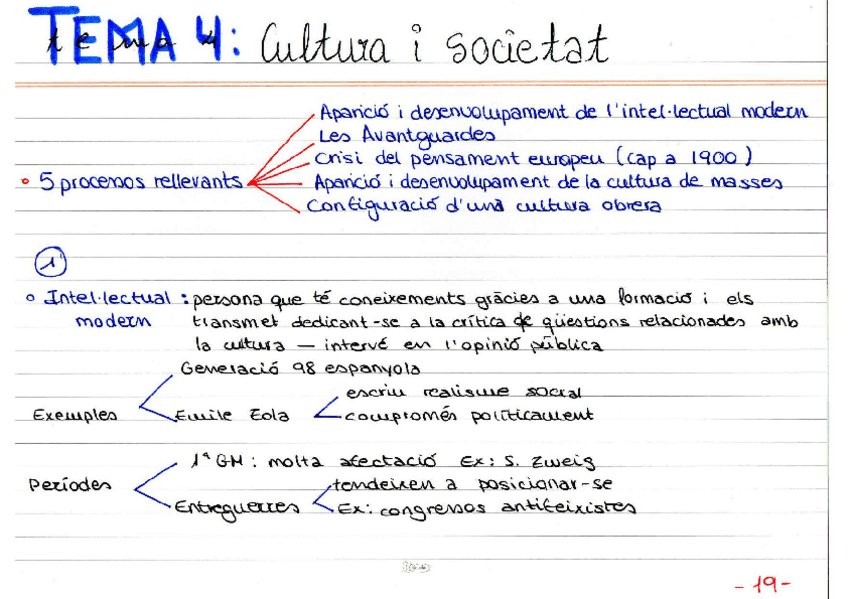 TEMA 4: Cultura i societat
Aparició i desenvolupament de l'intel·lectual modern
Les Avantguardes
Crisi del pensament europeu (cap a 1900)
• 5 processos rellevants
Aparició i desenvolupament de la cultura de masses
Configuració d'una cultura obrera
1
Intel·lectual modern: persona que té coneixements gràcies a una formació i els
transmet dedicant-se a la crítica de qüestions relacionades amb
la cultura — intervé en l'opinió pública
Generació 98 espanyola
escriu realisme social
Exemples
Emile Zola
compromés políticament
1ª GM: molta afectació Ex: S. Zweig
Períodes
tendeixen a posicionar-se
Entreguerres
Ex: congressos antifeixistes
- 19 -